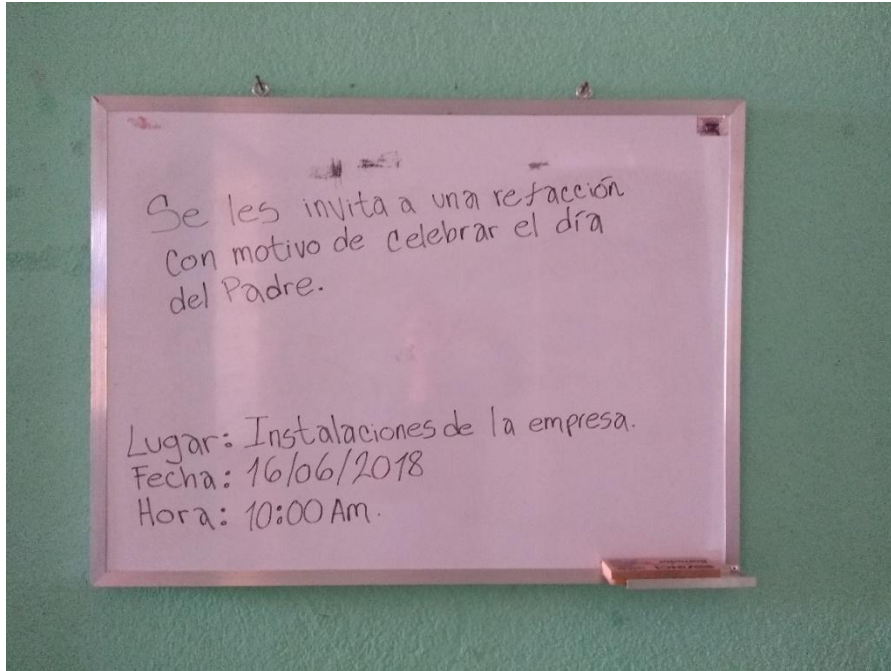 Se les invita a una refacción
con motivo de celebrar el día
del Padre.
Lugar: Instalaciones de la empresa.
Fecha: 16/06/2018
Hora: 10:00 Am.